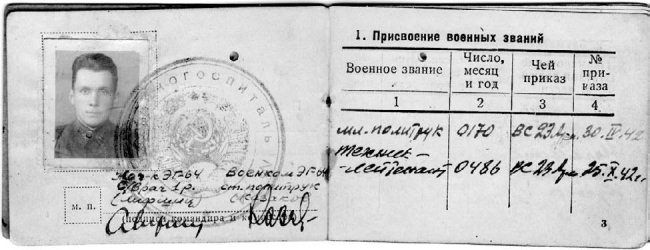 ГОСПИТАЛЬ
Нач-к ЭГ-64 Военком ЭГ-64
врач 1 р. ст. политрук
м. п.
(подписи командира и
1. Присвоение военных званий
Военное звание
Число, месяц и год
Чей приказ
№ приказа
1 2 3 4
мл. политрук 0170 ВС 23 30.IV.42
техник-
лейтенант 0486 ВС 23 25.X.42 г.
3